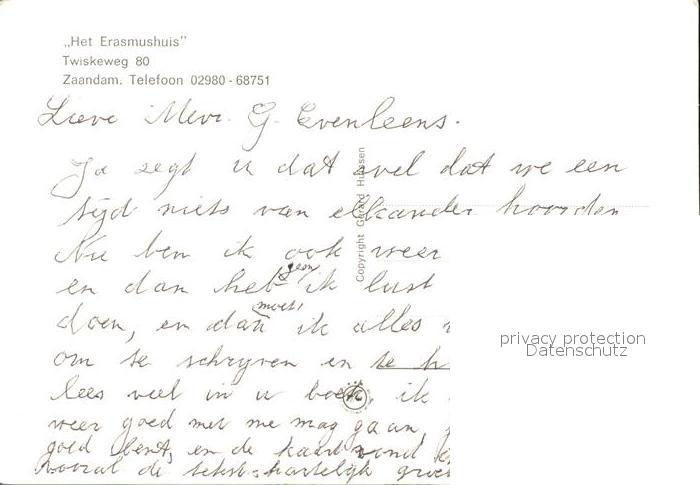 „Het Erasmushuis”
Twiskeweg 80
Zaandam. Telefoon 02980-68751
Lieve Mevr. G. Evenleens.
Ja zegt u dat wel dat we een
tijd niets van elkander hoorden
Nu ben ik ook weer
en dan heb geen ik lust
doen, en dan moet ik alles
om te schrijven en te
lees veel in u boek, ik
weer goed met me mag gaan,
goed bent, en de kaart vond
vooral de tekst. hartelijk
Copyright Gerard Hulssen
privacy protection
Datenschutz